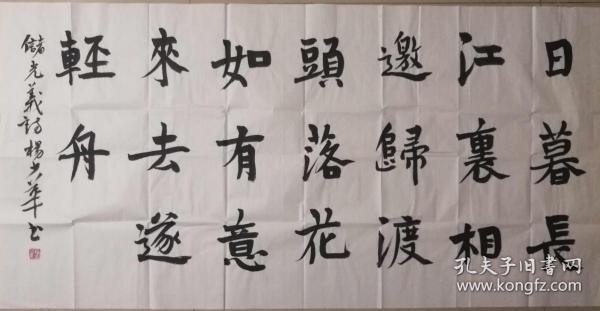 日暮長
江裏相
邀歸渡
頭落花
如有意
來去遂
輕舟
儲光義詩 楊少華书
孔夫子旧书网
www.kongfz.com